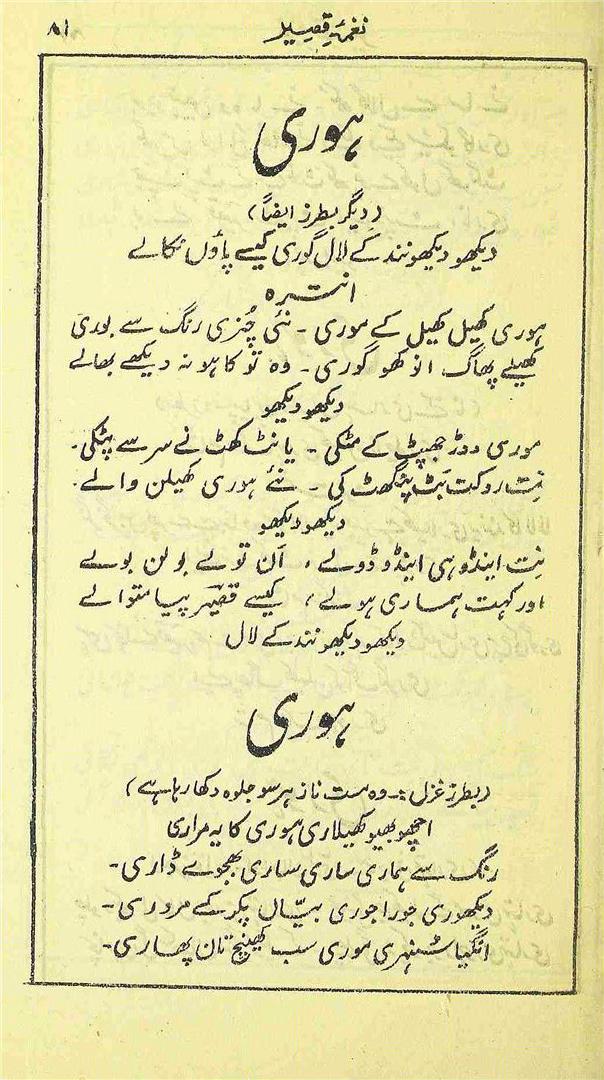 نغمۂ قصیر ۸۱
ہوری
(دیگر بطرز ایضاً)
دیکھو دیکھو نند کے لال گوری کیسے پاؤں نکالے
انترہ
ہوری کھیل کھیل کے موری - نئی چُنری رنگ سے بوری
کھیلے پھاگ انوکھو گوری - وہ تو کاہو نہ دیکھے بھالے
دیکھو دیکھو
موری دوڑ جھپٹ کے مٹکی - یا نٹ کھٹ نے سر سے پٹکی -
نِت روکت بَٹ پنگھٹ کی - نئے ہوری کھیلن والے -
دیکھو دیکھو
نِت اینڈو ہی اینڈو ڈولے ، اَن تولے بولن بولے
اور کہت ہماری ہولے ، کیسے قصیرؔ پیا متوالے
دیکھو دیکھو نند کے لال
ہوری
(بطرز غزل :- وہ مست ناز ہر سو جلوہ دکھا رہا ہے)
اچھو بھیو کھیلاری ہوری کا یہ مراری
رنگ سے ہماری ساری ساری بھجوے ڈاری -
دیکھوری جورا جوری بیّاں پکر کے مروری -
انگیا سُنہری موری سب کھینچ تان پھاری -